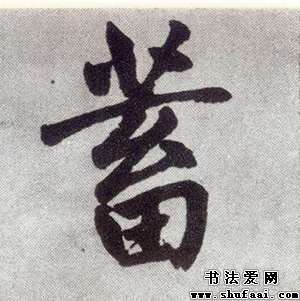 蓄
书法爱网
www.shufaai.com